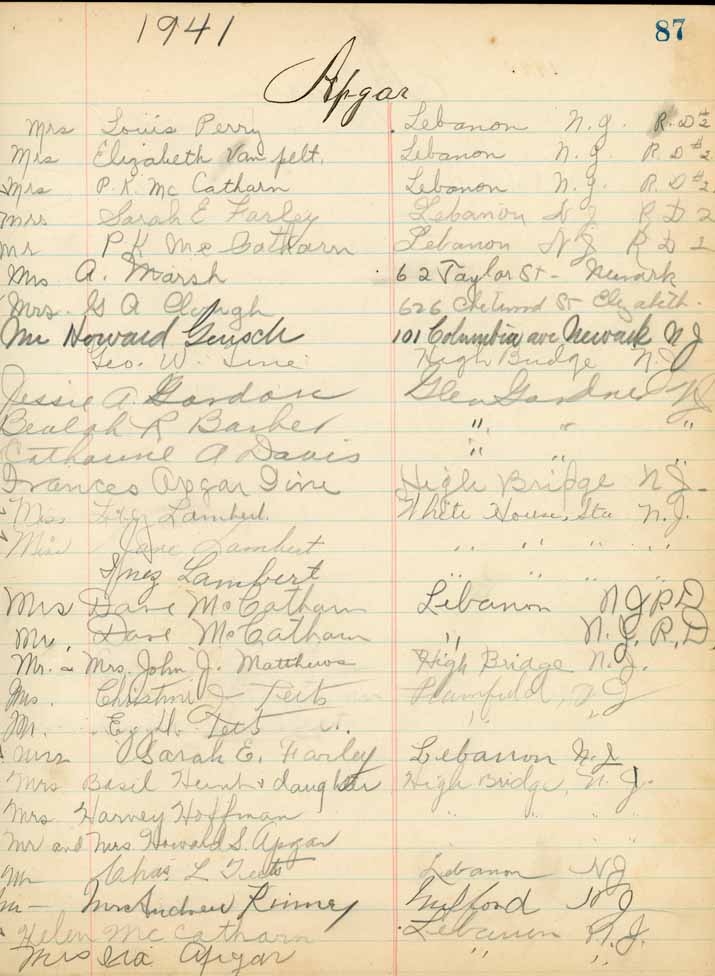 1941
87
Apgar
Mrs Louis Perry Lebanon N.J. R.D#2
Mrs Elizabeth Van pelt. Lebanon N.J. R.D#2
Mrs P.K. Mc Catharn Lebanon N.J. R D#2
Mrs Sarah E Farley Lebanon N J R D 2
Mr P K Mc Catharn Lebanon N J R D 2
Mrs A. Marsh 62 Taylor St - Newark
Mrs. G A Clough 626 Chetwood St Elizabeth.
Mr Howard Gensch 101 Columbia ave Newark N J
Geo. W. Tine High Bridge N.J.
Jessie A Gordon Glen Gardner NJ
Beulah R Barber " " "
Catharine A Davis " " "
Frances Apgar Tine High Bridge N J-
Miss Lambert. White House, Sta N.J.
Miss Jane Lambert " " " "
Inez Lambert " " " "
Mrs Dave McCatharn Lebanon N J R D
Mr. Dave McCatharn " N.J. R.D.
Mr. & Mrs. John J. Matthews High Bridge N.J.
Mrs. Christine J Teets Plainfield, N J
Mr. Teets " "
Mrs Sarah E. Farley Lebanon N.J
Mrs Basil Hunt & daughter High Bridge, N.J.
Mrs. Harvey Hoffman " " "
Mr and Mrs Howard S. Apgar " "
Mr Chas L Teets Lebanon NJ
Mrs Andrew Kinney Milford N J
Helen Mc Catharn Lebanon N.J.
Mrs Ira Apgar " "